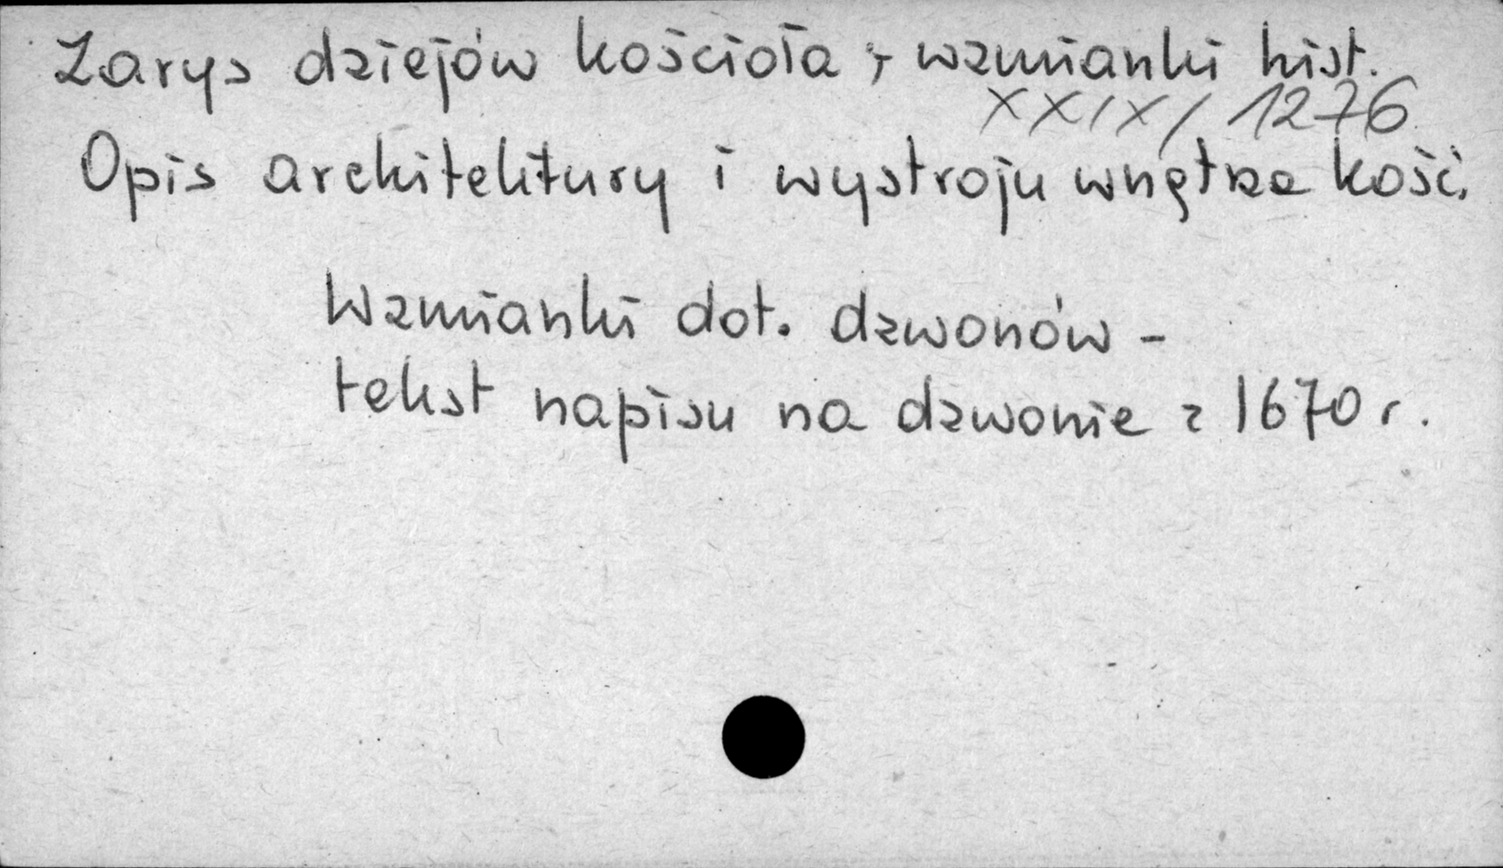 Zarys dziejów kościoła ; wzmianki hist.
XXIX/1276
Opis architektury i wystroju wnętrza kość.
Wzmianki dot. dzwonów -
tekst napisu na dzwonie z 1670 r.